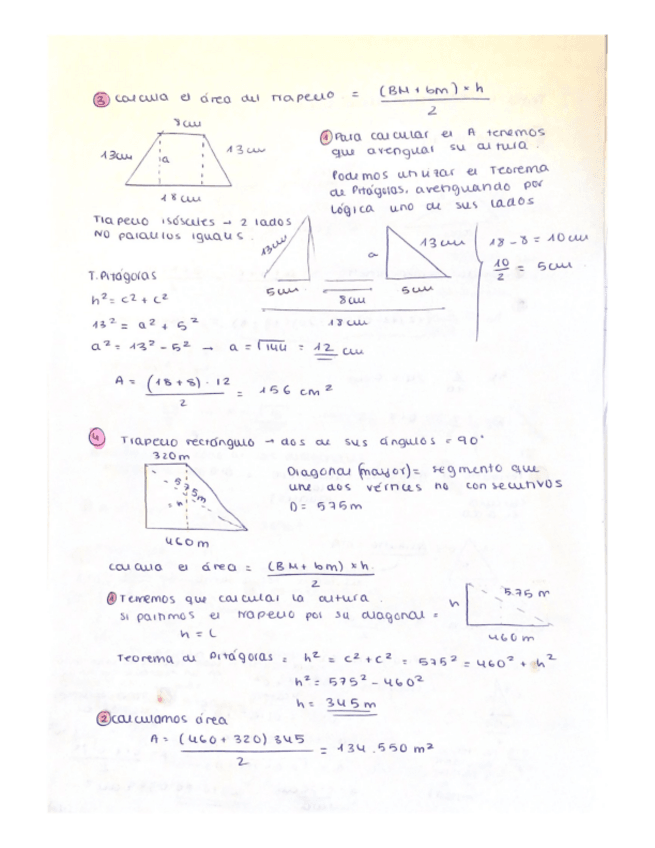 ③ Calcula el área del trapecio = (BM + bm) × h / 2
8 cm
13 cm
a
13 cm
18 cm
① Para calcular el A tenemos
que averiguar su altura.
Podemos utilizar el Teorema
de Pitágoras, averiguando por
lógica uno de sus lados
Trapecio isósceles → 2 lados
no paralelos iguales.
13 cm
a
13 cm
5 cm
8 cm
5 cm
18 cm
18 - 8 = 10 cm
10 / 2 = 5 cm
T. Pitágoras
h² = c² + c²
13² = a² + 5²
a² = 13² - 5² → a = √144 = 12 cm
A = (18 + 8) · 12 / 2 = 156 cm²
④ Trapecio rectángulo → dos de sus ángulos = 90°
320 m
575 m
= h
460 m
Diagonal (mayor) = segmento que
une dos vértices no consecutivos
D = 575 m
Calcula el área = (BM + bm) × h. / 2
① Tenemos que calcular la altura.
Si partimos el trapecio por su diagonal =
h = c
h
575 m
460 m
Teorema de Pitágoras = h² = c² + c² = 575² = 460² + h²
h² = 575² - 460²
h = 345 m
② Calculamos área
A = (460 + 320) 345 / 2 = 134.550 m²